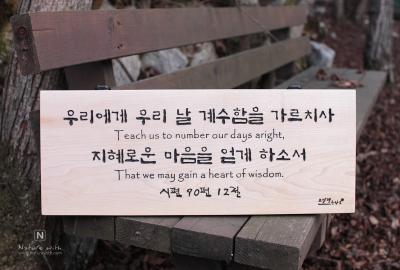 우리에게 우리 날 계수함을 가르치사
Teach us to number our days aright,
지혜로운 마음을 얻게 하소서
That we may gain a heart of wisdom.
시편 90편 12절
N
Nature with